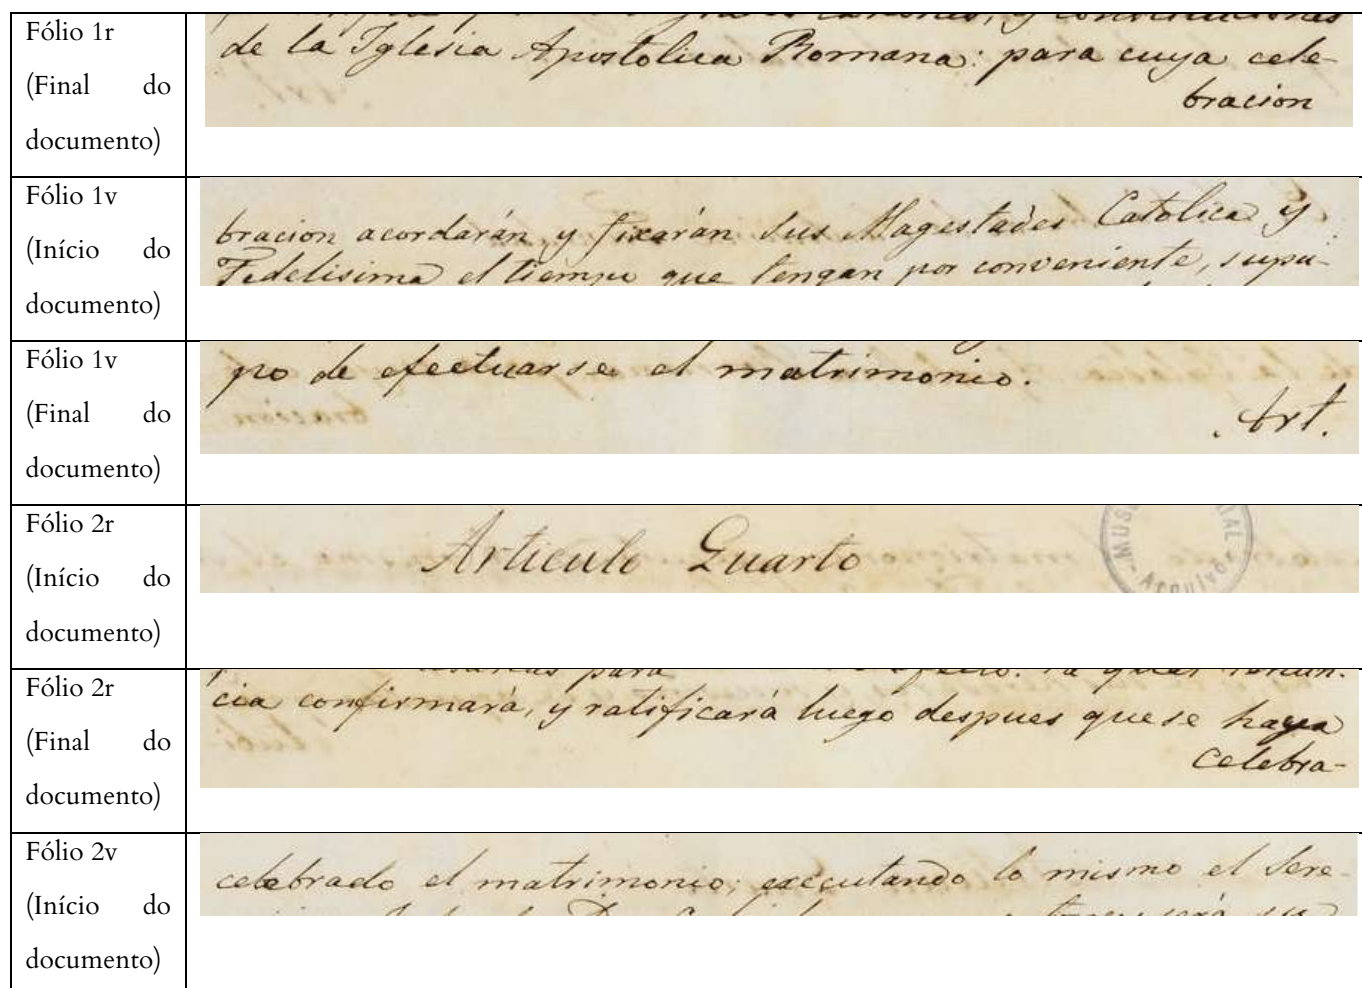 Fólio 1r
(Final do
documento)
canones, y constituciones
de la Iglesia Apostolica Romana: para cuya cele-
bracion
Fólio 1v
(Início do
documento)
bracion acordarán, y fixarán sus Magestades Catolica y
Fidelisima el tiempo que tengan por conveniente, supu-
Fólio 1v
(Final do
documento)
po de efectuarse el matrimonio.
Art.
Fólio 2r
(Início do
documento)
Articulo Quarto
Arquivo
Fólio 2r
(Final do
documento)
para
cia confirmará, y ratificará luego despues que se haya
celebra-
Fólio 2v
(Início do
documento)
celebrado el matrimonio; executando lo mismo el Sere-